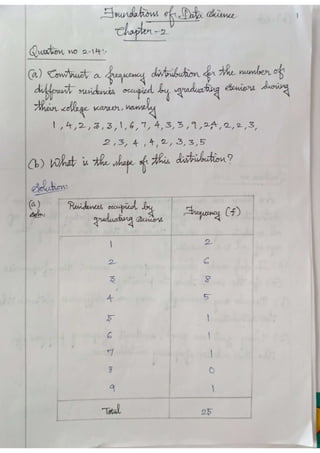 Foundations of Data Science
1
Chapter-2
Question no 2.14:-
(a) Construct a frequency distribution for the number of
different residences occupied by graduating seniors during
their college career, namely
1, 4, 2, 3, 3, 1, 6, 7, 4, 3, 3, 9, 2, 4, 2, 2, 3,
2, 3, 4, 4, 2, 3, 3, 5
(b) What is the shape of this distribution?
Solution:
(a)
Residences occupied by graduating seniors
Frequency (f)
1 2
2 6
3 8
4 5
5 1
6 1
7 1
8 0
9 1
Total 25